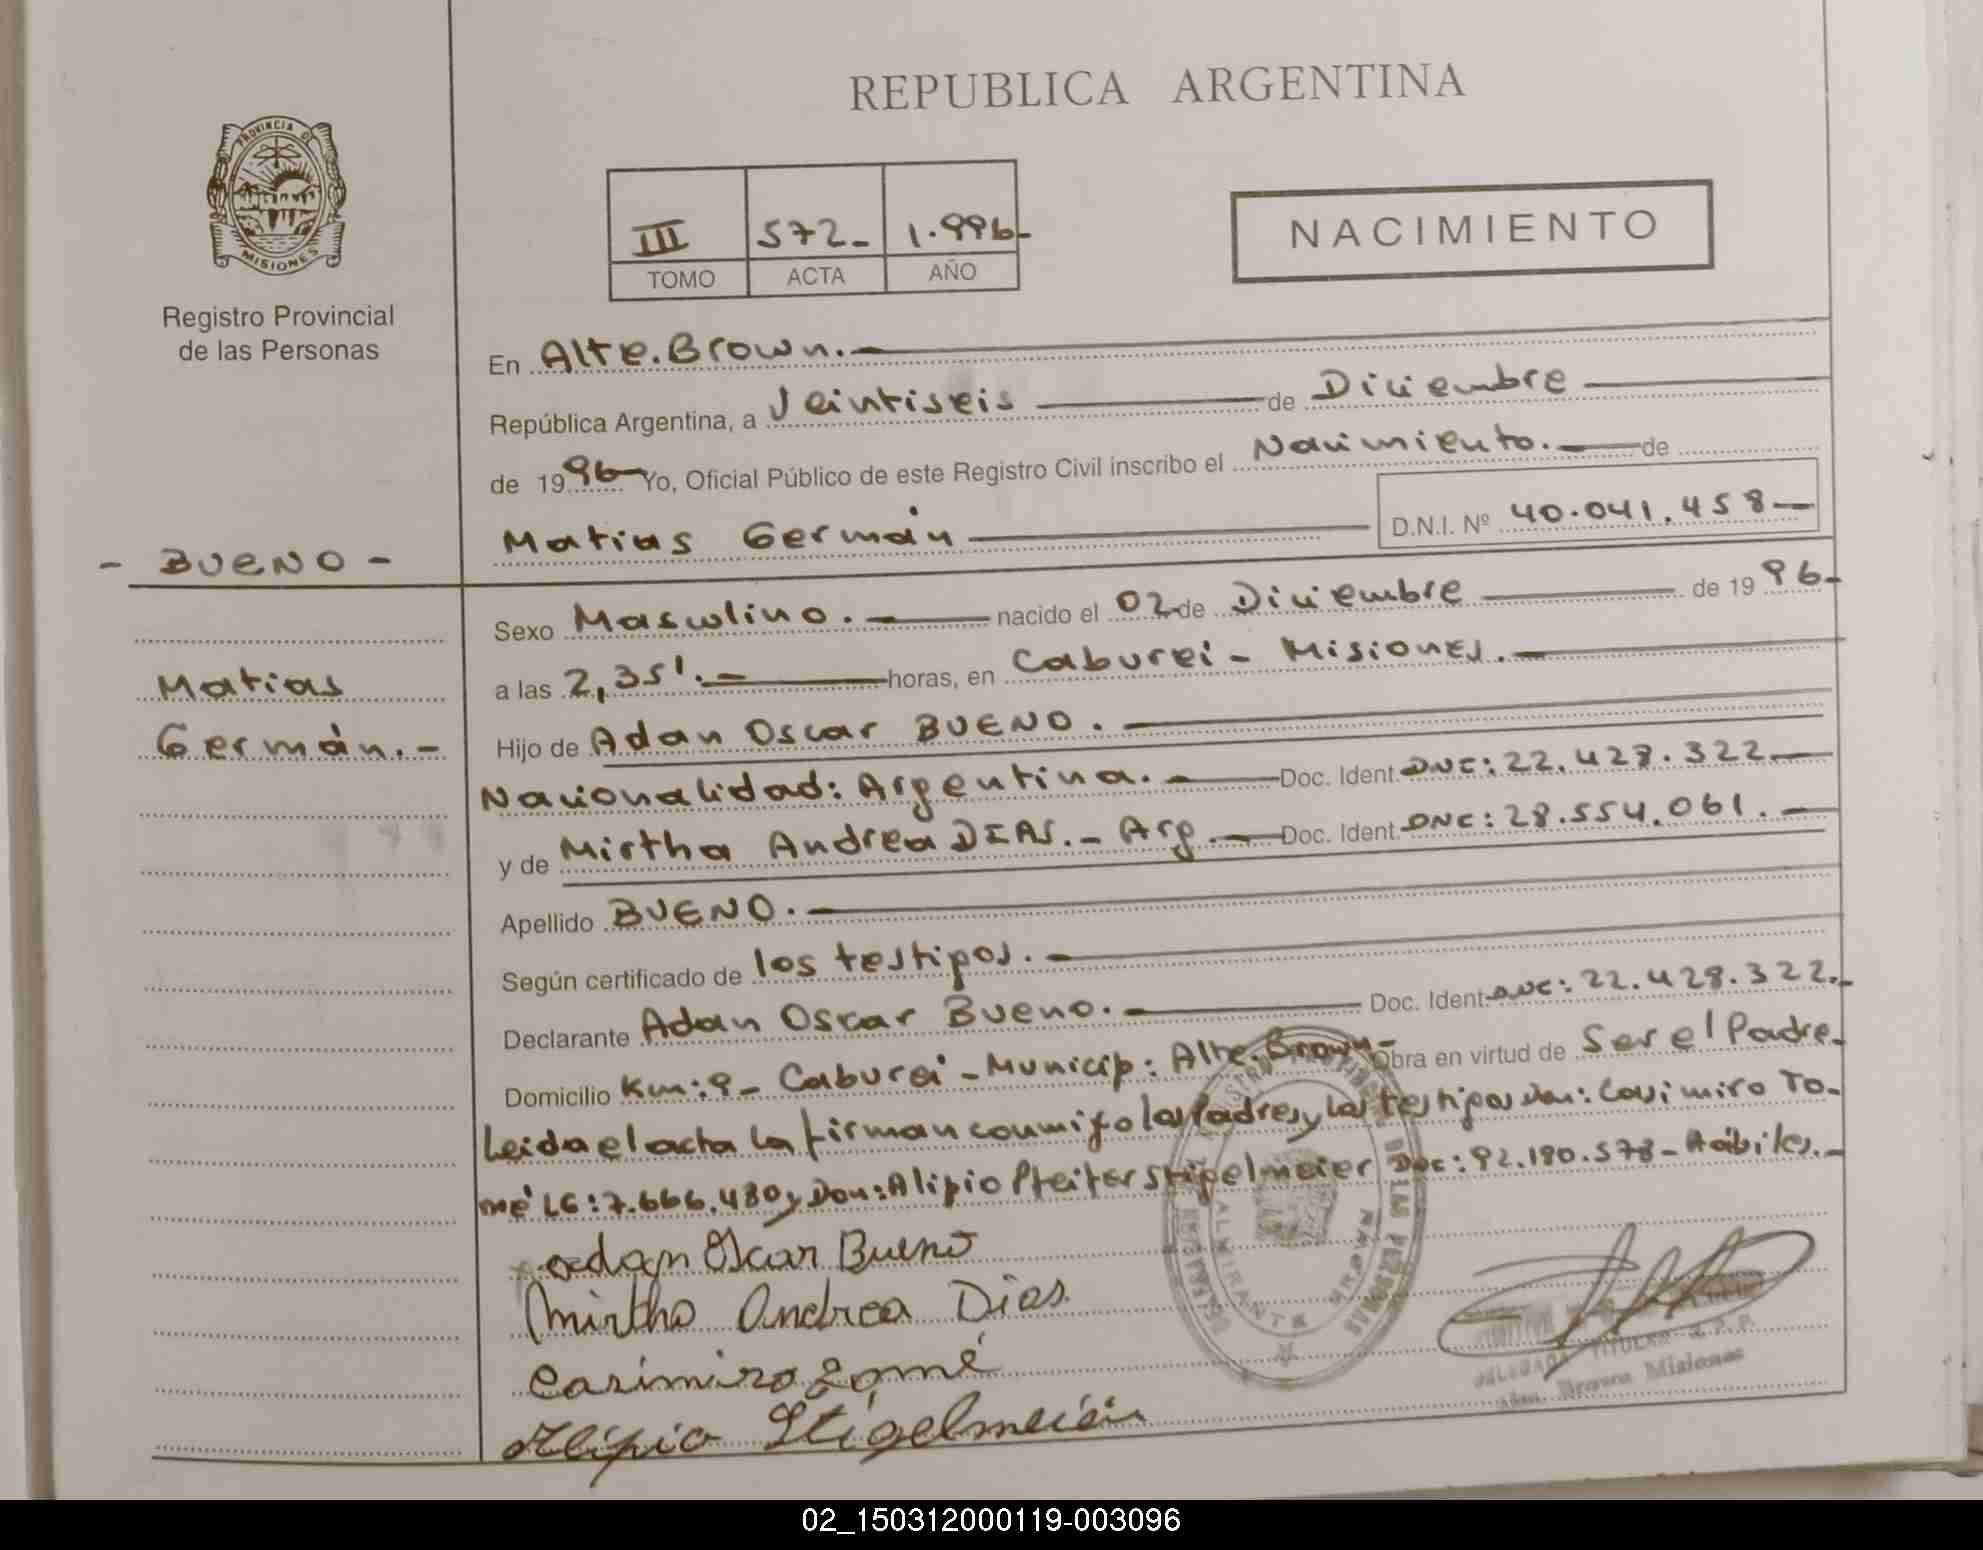 REPUBLICA ARGENTINA
PROVINCIA DE
MISIONES
Registro Provincial
de las Personas
III 572- 1.996-
TOMO ACTA AÑO
NACIMIENTO
En Alte. Brown.-
República Argentina, a Veintiseis de Diciembre
de 1996 Yo, Oficial Público de este Registro Civil inscribo el Nacimiento.- de
Matias Germán D.N.I. Nº 40.041.458-
- BUENO -
Matias
Germán.-
Sexo Masculino.- nacido el 02 de Diciembre de 1996-
a las 2,35'.- horas, en Caburei - Misiones.-
Hijo de Adan Oscar BUENO.-
Nacionalidad: Argentina.- Doc. Ident. DNI: 22.428.322.-
y de Mirtha Andrea DIAS.- Arg.- Doc. Ident. DNI: 28.554.061.-
Apellido BUENO.-
Según certificado de los testigos.-
Declarante Adan Oscar Bueno.- Doc. Ident. DNI: 22.428.322.-
Domicilio Km: 9- Caburei - Municip: Alte. Brown- Obra en virtud de Ser el Padre.
Leida el acta la firman conmigo los Padres y los testigos Don: Casimiro To-
mé LE: 7.666.480 y Don: Alipio Pfeifer Stigelmeier Doc: 92.190.578- Hábiles.-
Adan Oscar Bueno
Mirtha Andrea Dias
Casimiro Tomé
Alipio Stigelmeier
ALMIRANTE BROWN
DELEGADA TITULAR R.P.P.
Alte. Brown Misiones
02_150312000119-003096